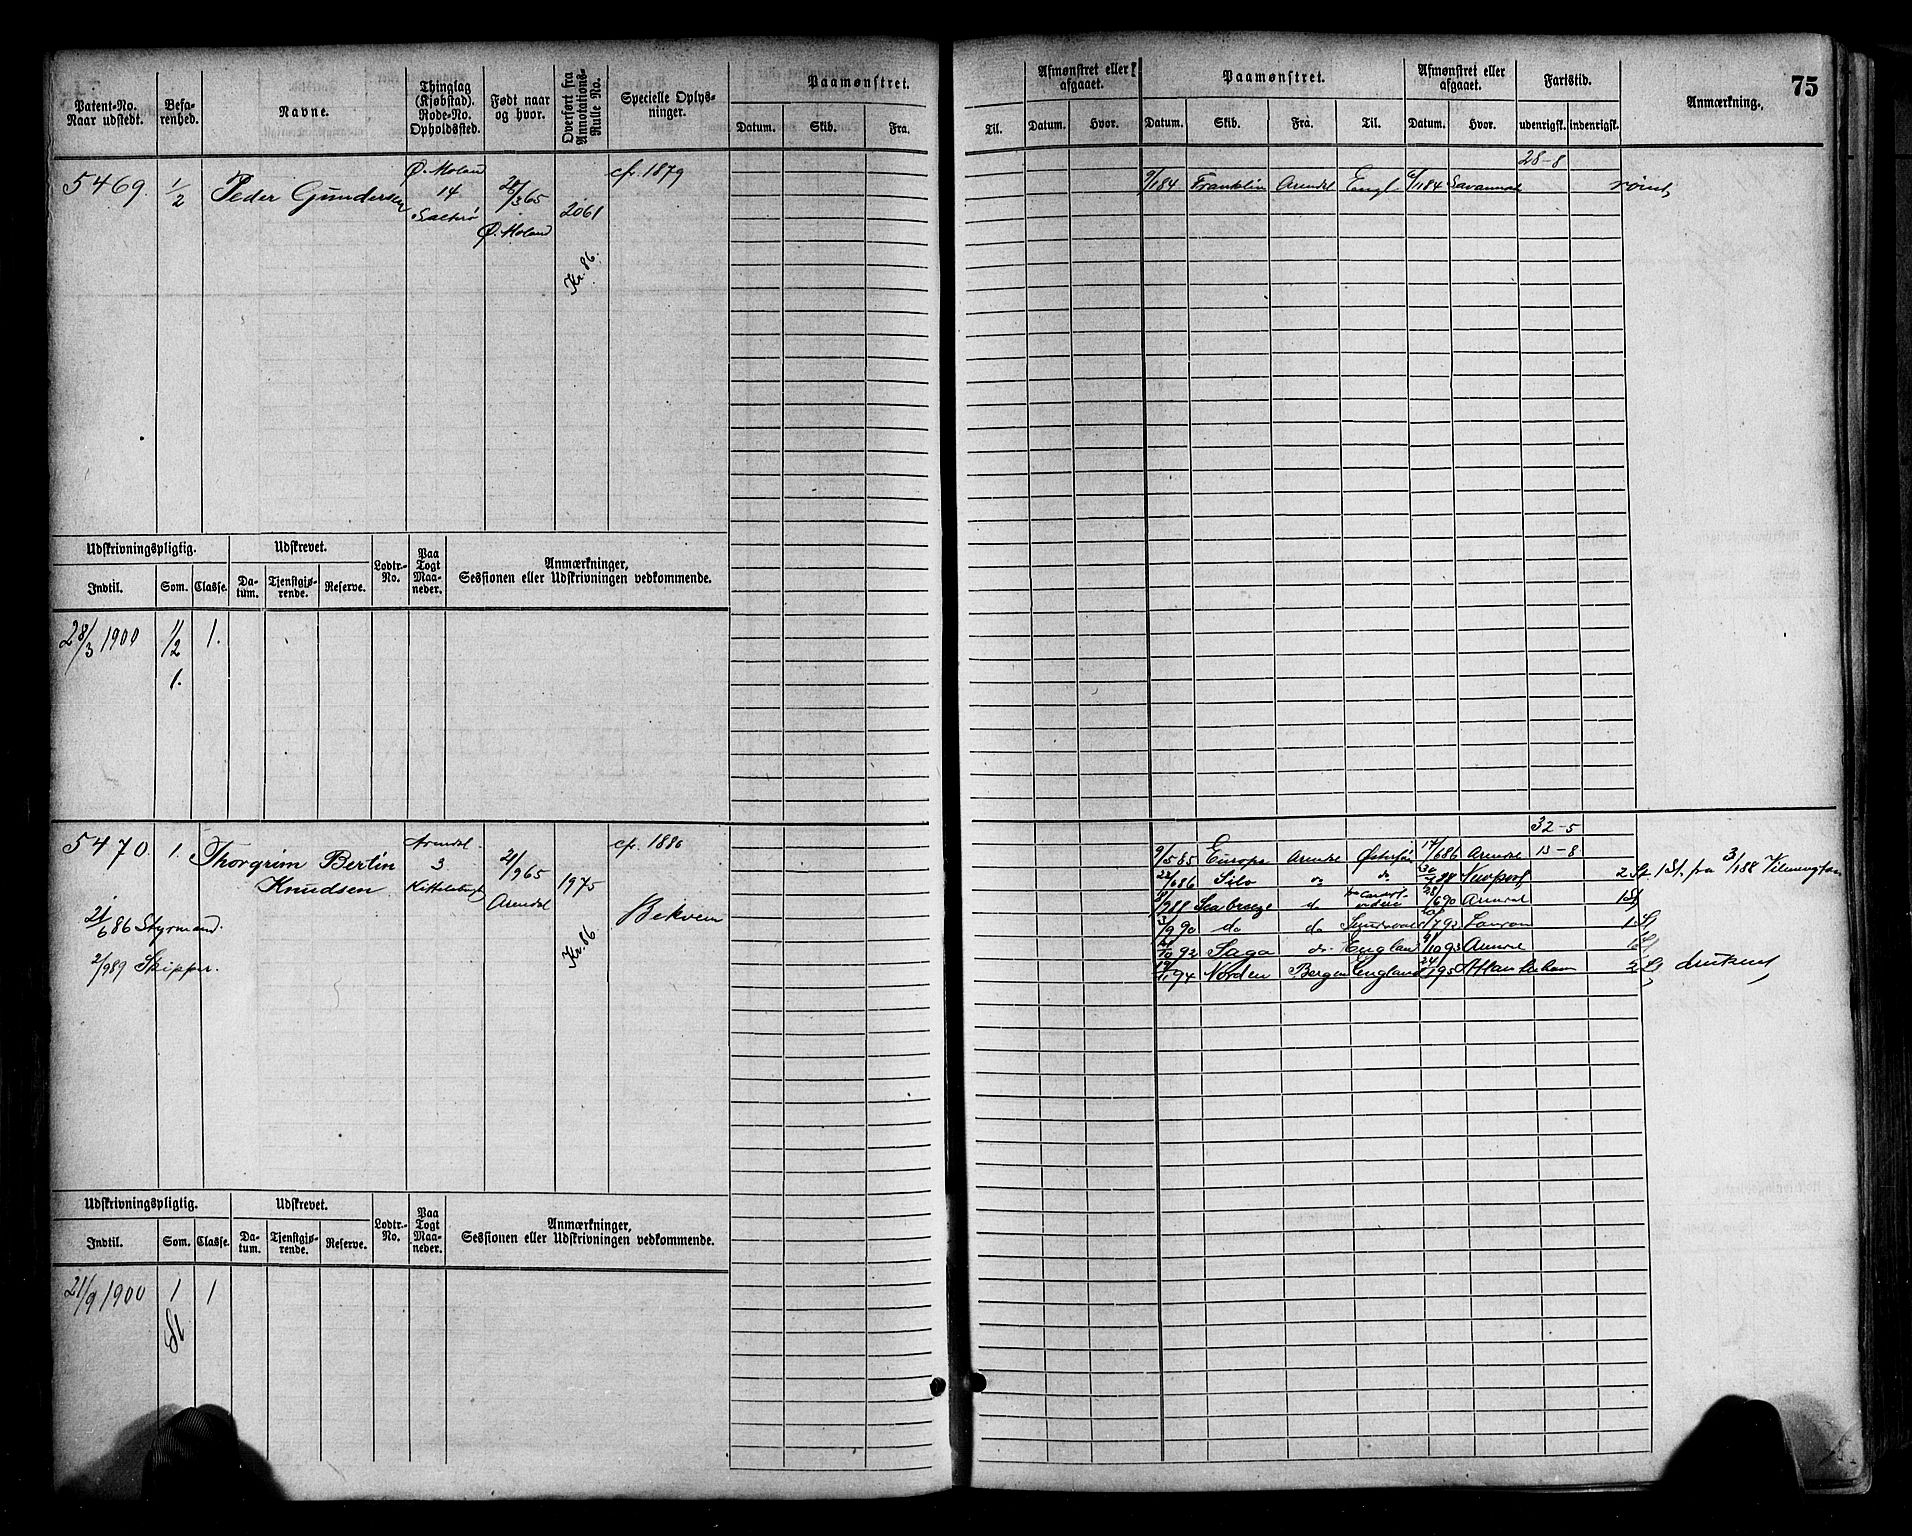 75
Patent-No. Naar udstedt. Befarenhed. Navne. Thinglag (Kjøbstad). Rode-No. Opholdssted. Født naar og hvor. Overført fra Annotations-Rulle No. Specielle Oplysninger. Paamønstret. Datum. Skib. Fra.
Til. Afmønstret eller afgaaet. Datum. Hvor. Paamønstret. Datum. Skib. Fra. Til. Afmønstret eller afgaaet. Datum. Hvor. Fartstid. udenrigsk. indenrigsk. Anmærkning.
5469. 1/2 Peder Gundersen Ø. Moland 14 Saltrø 28/3 65 Ø. Moland 2061 Kr. 86. cfr. 1879
28-8
9/1 84 Franklin Arendal Engl 6/1 84 Savannah rømt
Udskrivningspligtig. Udskrevet. Lodtr.-No. Paa Togt Maaneder. Anmærkninger, Sessionen eller Udskrivningen vedkommende.
Indtil. Som. Classe. Datum. Tjenstgjørende. Reserve.
28/3 1900 1/2 1.
1.
5470. 1. Thorgrim Bertin Knudsen Arendal 3 Kittelsbugt 21/9 65 Arendal 1975 Kr. 86 cfr. 1880
Bekvem
21/6 86 Styrmand.
2/9 89 Skipper.
32-5
9/5 85 Europa Arendal 14/6 86 Arendal 13-8
22/6 86 Silo do do Newport 2 St. 1 St. fra 3/1 88
88 Seabreeze do 90 Arendal 1 St
3/9 90 do do 92 1 St
92 Saga do England 10 93 Arendal
94 Norden Bergen England 24/1 95 2 St druknet
Udskrivningspligtig. Udskrevet. Lodtr.-No. Paa Togt Maaneder. Anmærkninger, Sessionen eller Udskrivningen vedkommende.
Indtil. Som. Classe. Datum. Tjenstgjørende. Reserve.
21/9 1900 1 1
St